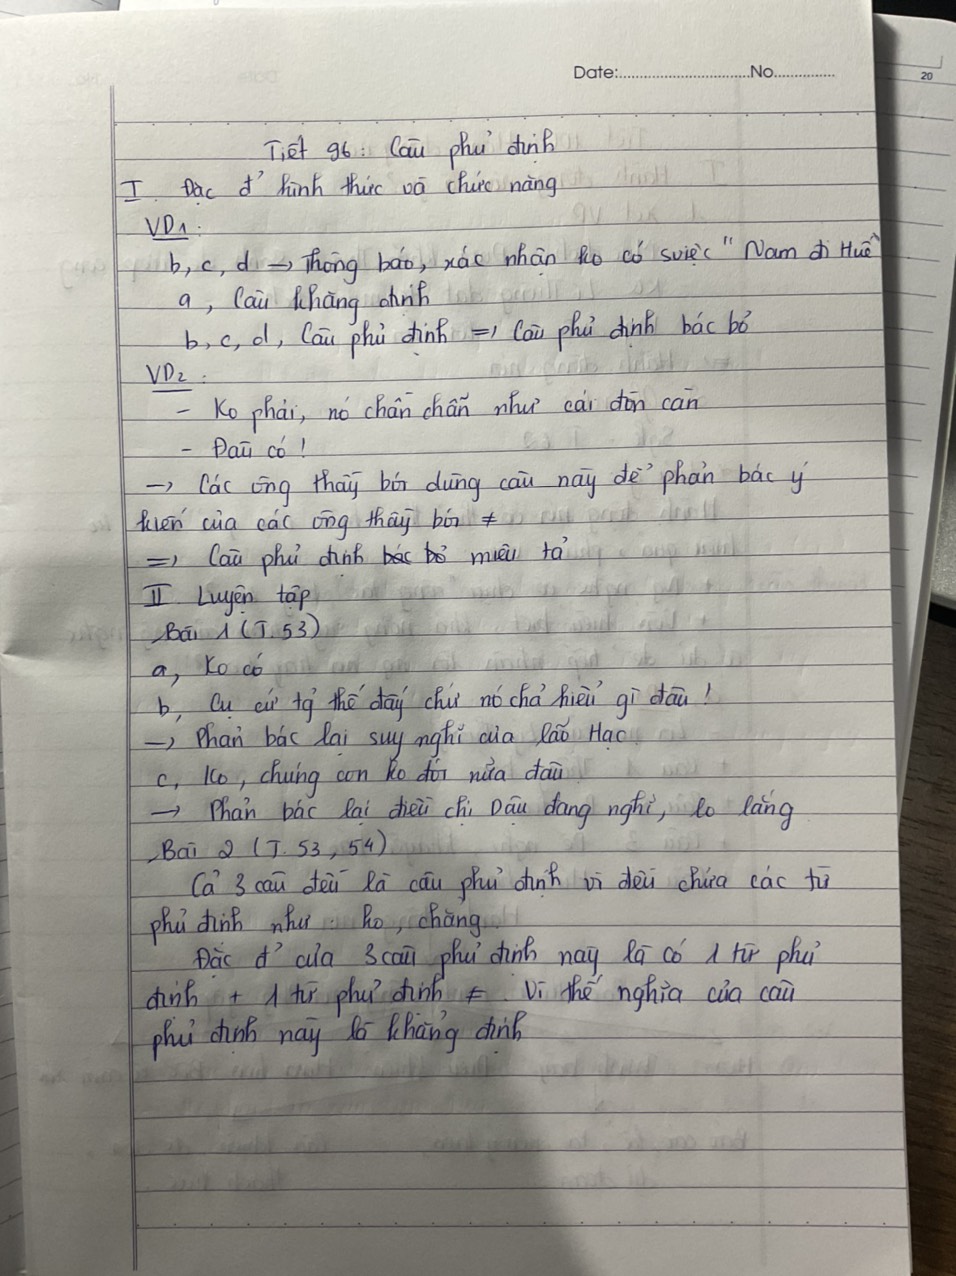 Date: No
20
Tiết 96: Câu phủ định
I Đặc đ' hình thức và chức năng
VD1:
b, c, d → Thông báo, xác nhận ko có sviệc "Nam đi Huế"
a, Câu khẳng định
b, c, d, Câu phủ định => Câu phủ định bác bỏ
VD2:
- Ko phải, nó chần chẫn như cái đòn càn
- Đâu có!
→ Các ông thầy bói dùng câu này để phản bác ý
kiến của các ông thầy bói ≠
=> Câu phủ định bác bỏ miêu tả
II Luyện tập
Bài 1 (T.53)
a, Ko có
b, Cụ cứ tg thế đấy chứ nó chả hiểu gì đâu!
→ Phản bác lại suy nghĩ của lão Hạc
c, Ko, chúng con ko đói nữa đâu
→ Phản bác lại điều chị Dậu đang nghĩ, lo lắng
Bài 2 (T.53, 54)
Cả 3 câu đều là câu phủ định vì đều chứa các từ
phủ định như: ko, chẳng
Đặc đ' của 3 câu phủ định này là có 1 từ phủ
định + 1 từ phủ định ≠. Vì thế nghĩa của câu
phủ định này là khẳng định